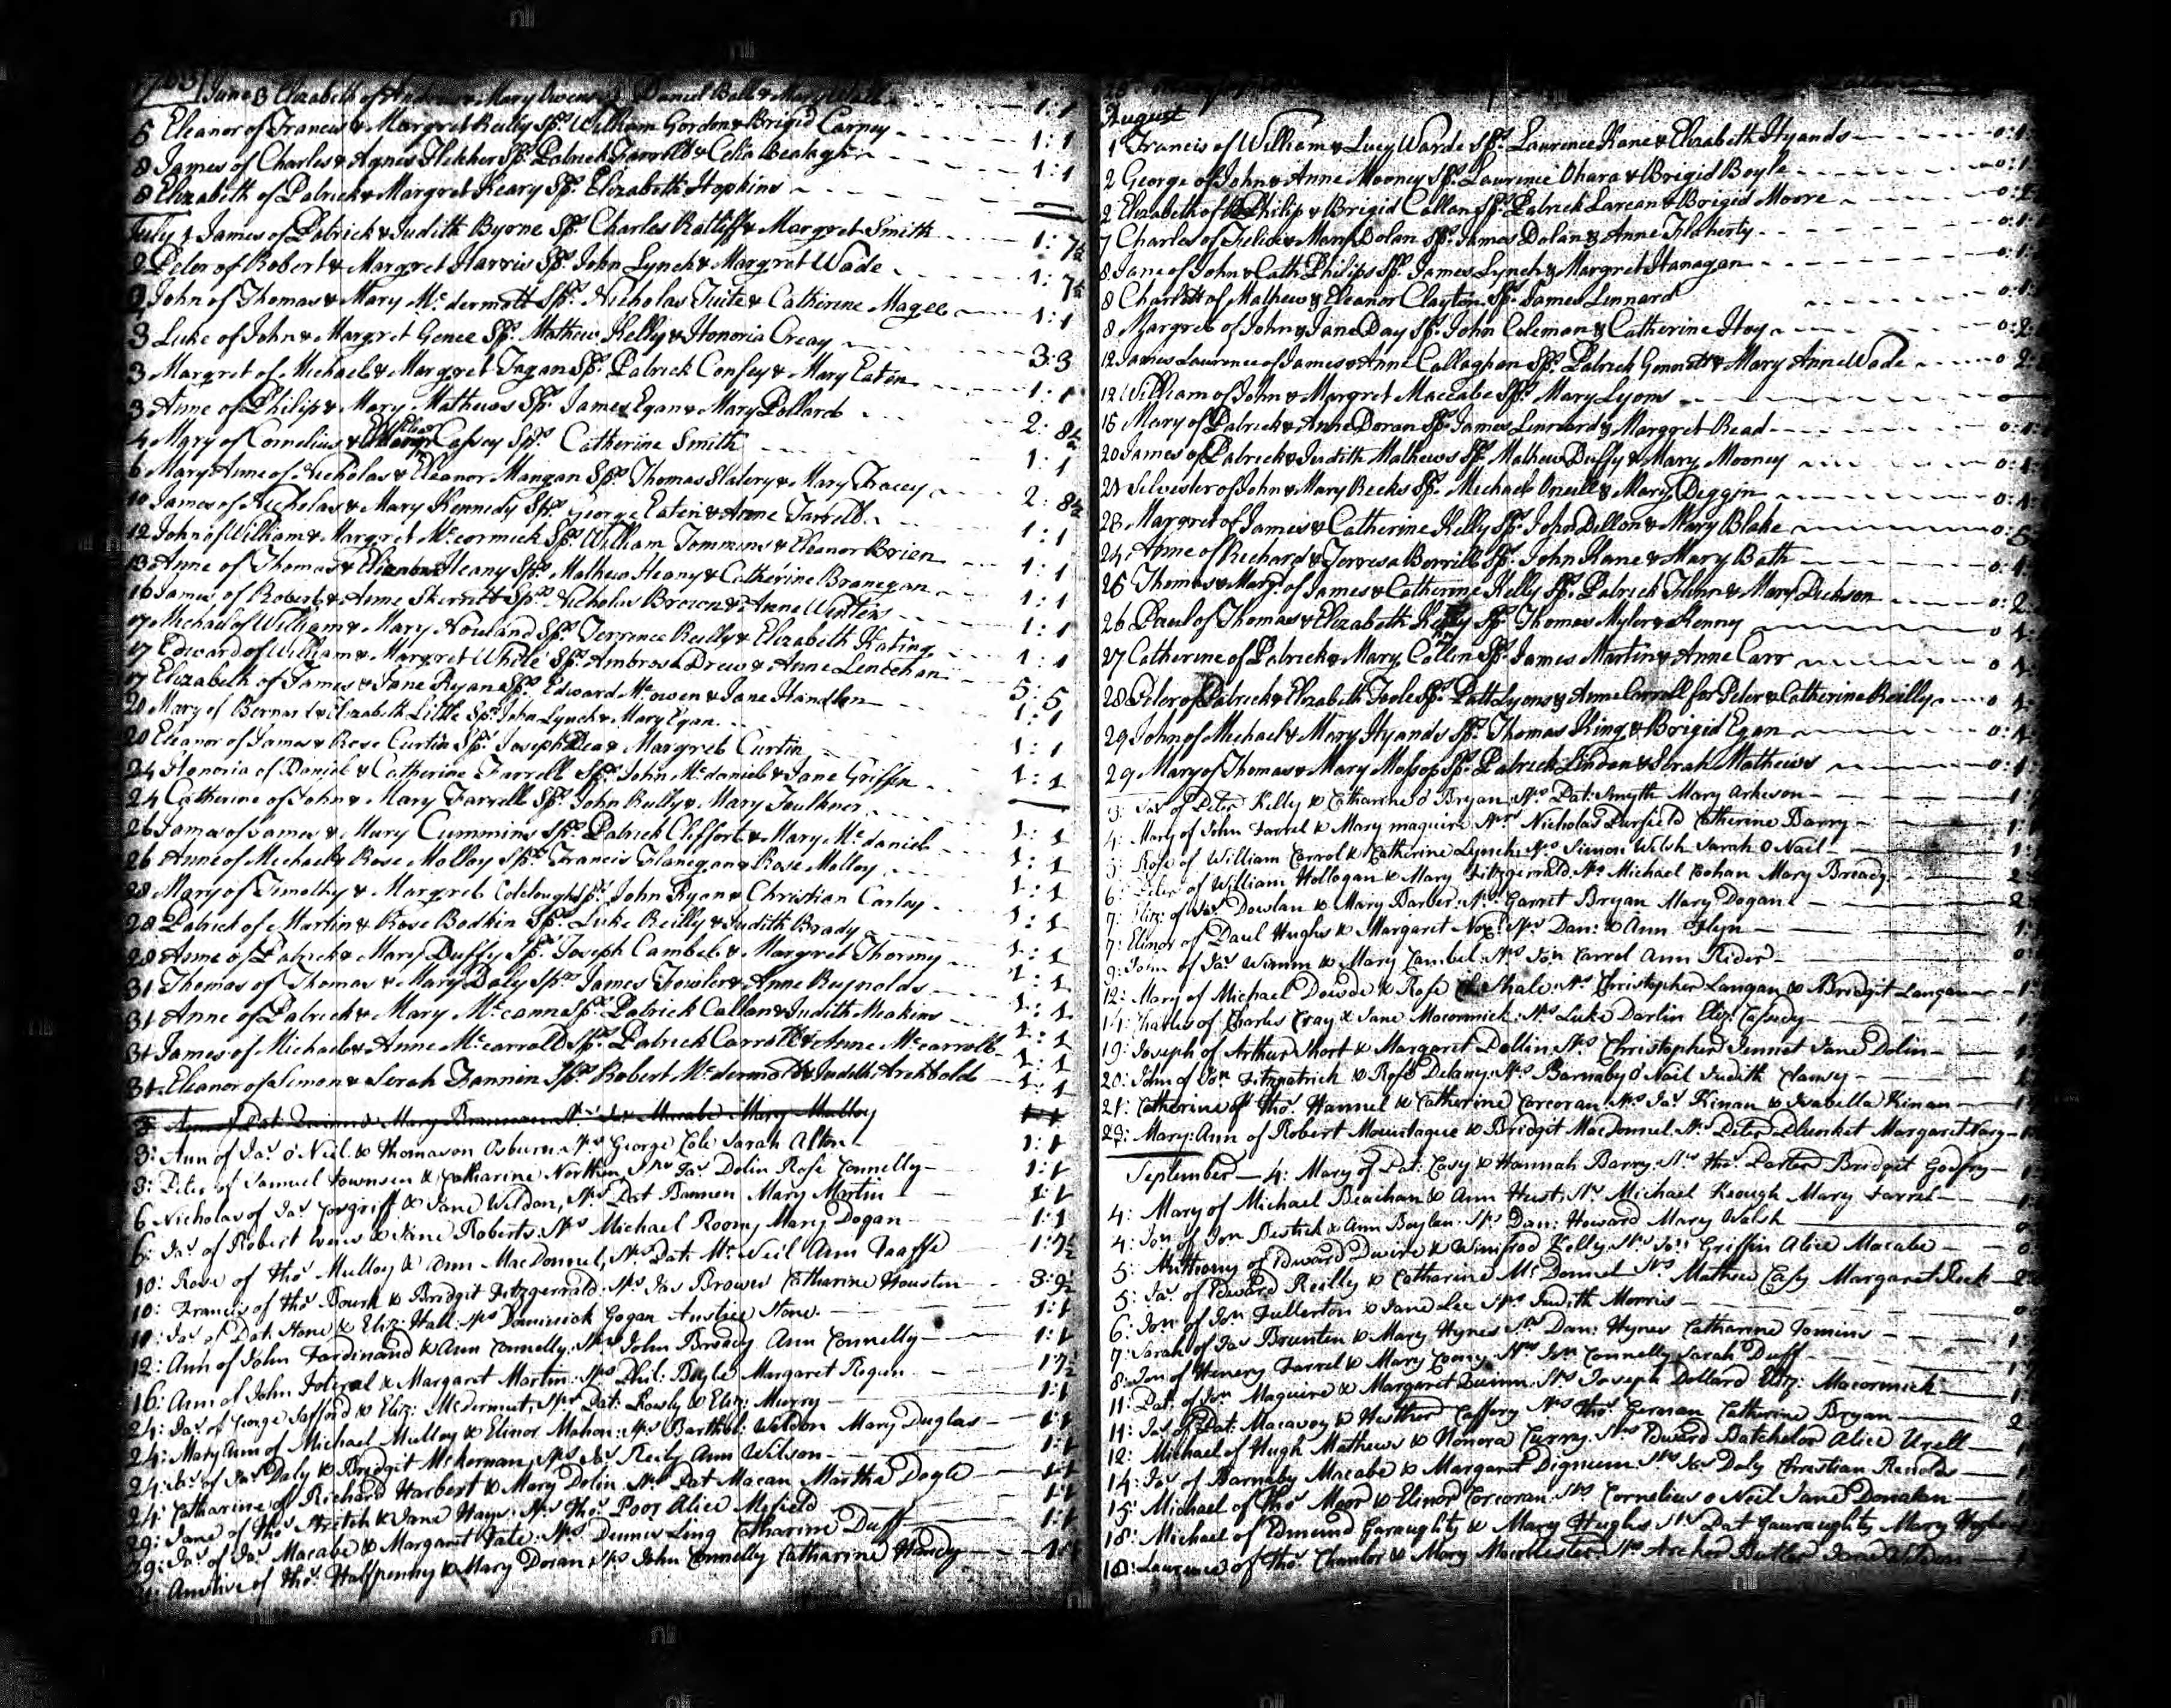 1763 June 3 Elizabeth of Andrew & Mary Owens Daniel Ball & Mary
5 Eleanor of Francis & Margret Reilly Sp:s William Gordon & Brigid Carney 1:1
8 James of Charles & Agnes Fletcher Sp:s Patrick Farrell & Celia 1:1
8 Elizabeth of Patrick & Margret Keary Sp:s Elizabeth Hopkins 1:1
July 1 James of Patrick & Judith Byrne Sp:s Charles Ratliff & Margret Smith 1:7½
2 Peter of Robert & Margret Harris Sp:s John Lynch & Margret Wade 1:7½
2 John of Thomas & Mary Mc.dermott Sp:s Nicholas Tuite & Catherine Magee 1:1
3 Luke of John & Margret Genee Sp:s Mathew Kelly & Honoria Creay 3:3
3 Margret of Michael & Margret Fagan Sp:s Patrick Confey & Mary Eaten 1:1
3 Anne of Philip & Mary Mathews Sp:s James Egan & Mary Pollard 2:8½
4 Mary of Cornelius & Cassey Sp:s Catherine Smith 1:1
6 Mary Anne of Nicholas & Eleanor Mangan Sp:s Thomas Slatery & Mary Tracey 2:8½
10 James of Nicholas & Mary Kennedy Sp:s George Eaten & Anne Farrell 1:1
12 John of William & Margret Mc.cormick Sp:s William Tommins & Eleanor Brien 1:1
13 Anne of Thomas & Eleanor Heany Sp:s Mathew Heany & Catherine Branegan 1:1
16 James of Robert & Anne Skerritt Sp:s Nicholas Brown & Anne Winters 1:1
17 Michael of William & Mary Howland Sp:s Terrence Reilly & Elizabeth Kating 1:1
17 Edward of William & Margret White Sp:s Ambrose Drew & Anne Lenechan 5:5
17 Elizabeth of James & Jane Ryan Sp:s Edward Mc.owen & Jane Handlen 1:1
20 Mary of Bernard & Elizabeth Little Sp:s John Lynch & Mary Egan
20 Eleanor of James & Rose Curtin Sp:s Joseph Rea & Margret Curtin 1:1
24 Honoria of Daniel & Catherine Farrell Sp:s John Mc.daniel & Jane Griffin 1:1
24 Catherine of John & Mary Farrell Sp:s John Rully & Mary Faulkner
26 James of James & Mary Cummins Sp:s Patrick Clifford & Mary Mc.daniel 1:1
26 Anne of Michael & Rose Molloy Sp:s Francis Flanegan & Rose Molloy 1:1
28 Mary of Timothy & Margret Colclough Sp:s John Ryan & Christian Carley 1:1
28 Patrick of Martin & Rose Bodkin Sp:s Luke Reilly & Judith Brady 1:1
28 Anne of Patrick & Mary Duffy Sp:s Joseph Cambel & Margret Thorny 1:1
31 Thomas of Thomas & Mary Daly Sp:s James Fowler & Anne Reynolds 1:1
31 Anne of Patrick & Mary Mc.cann Sp:s Patrick Callan & Judith Meakins 1:1
31 James of Michael & Anne Mc.carroll Sp:s Patrick Carroll & Anne Mc.carroll 1:1
31 Eleanor of Simon & Serah Fannin Sp:s Robert Mc.dermott & Judith Archbold 1:1
3: Ann of Ja.s o'Neil & Thomason Osburn Sp.s George Cole Sarah Alton 1:1
3: Peter of Samuel Townsen & Catharine Northon Sp.s Ja.s Dolin Rose Connelly 1:1
6 Nicholas of Ja.s Cosgriff & Jane Weldon, Sp.s Pat Bannen Mary Martin 1:1
6: Ja.s of Robert & Jane Roberts Sp.s Michael Roony Mary Dogan 1:1
10: Rose of Tho.s Mulloy & Ann MacDonnel, Sp.s Pat: Mc.Neil Ann Taaffe 1:7½
10: Francis of Tho.s Bourk & Bridget Fitzgerrald Sp.s Jas Brower Catharine Houston 3:9½
10: Ja.s of Pat: Hone & Eliz: Hall: Sp.s Dominick Gogan Hone 1:1
12: Ann of John Ferdinand & Ann Connelly Sp.s John Bready Ann Connelly 1:1
16: Ann of John & Margaret Martin Sp.s Phil: Boyle Margaret Rogen 1 7½
24: Ja.s of George Safford & Eliz: McDermut, Sp.s Pat: Rowly & Eliz: Murry 1:1
24: Mary Ann of Michael Mulloy & Elinor Mahon Sp.s Barthol: Weldon Mary Duglas 1:1
24: Ja.s of Ja.s Daly & Bridget McKernan, Sp.s Ja.s Reily Ann Wilson 1:1
24: Catharine of Richard Harbert & Mary Dolin Sp.s Pat Macan Martha Dogle 1:1
29: Jane of Tho.s Stritch & Jane Hays Sp.s Tho.s Poor Alice 1:1
29: Ja.s of Ja.s Macabe & Margaret Tate Sp.s Dennis Ling Catharine Duff 1:1
of Tho.s Halfpenny & Mary Doran Sp.s John Connelly Catharine Hardy 1:1
August
1 Francis of William & Lucy Warde Sp:s Laurence Kane & Elizabeth Hyands
2 George of John & Anne Mooney Sp:s Laurence Ohara & Brigid Boyle
2 Elizabeth of Philip & Brigid Callan Sp:s Patrick Larcan & Brigid Moore
7 Charles of Felix & Mary Dolan Sp:s James Dolan & Anne Flaherty
8 Jane of John & Cath Philips Sp:s James Lynch & Margret Hanagan
8 Charlott of Mathew & Eleanor Clayton Sp:s James Linnard
8 Margret of John & Jane Day Sp:s John Coleman & Catherine Hoy
12 James Laurence of James & Anne Callaghan Sp:s Patrick & Mary Anne Wade
12 William of John & Margret Maccabe Sp:s Mary Lyons
15 Mary of Patrick & Anne Doran Sp:s James Linnard & Margret Read
20 James of Patrick & Judith Mathews Sp:s Mathew Duffy & Mary Mooney
21 Silvester of John & Mary Reeks Sp:s Michael Oneill & Mary Deggin
23 Margret of James & Catherine Kelly Sp:s John Dillon & Mary Blake
24 Anne of Richard & Terresa Berrill Sp:s John Kane & Mary Bath
25 Thomas & Marg.t of James & Catherine Kelly Sp:s Patrick Flinn & Mary Dickson
26 Paul of Thomas & Elizabeth Sp:s Thomas Myler & Kenny
27 Catherine of Patrick & Mary Collin Sp:s James Martin & Anne Carr
28 Peter of Patrick & Elizabeth Toole Sp:s Patt Lyons & Anne Carroll for Peter & Catherine Reilly
29 John of Michael & Mary Hyands Sp:s Thomas King & Brigid Egan
29 Mary of Thomas & Mary Mossop Sp:s Patrick Lindon & Serah Mathews
3: Ja.s of Peter Kelly & Catharine o Bryan Sp.s Pat: Smyth Mary Arkeson
4: Mary of John Farrel & Mary maguire Sp.s Nicholas Durfield Catherine Barry
5: Rose of William Carrol & Catherine Lynch Sp.s Simon Wilsh Sarah O Nail
6: Peter of William Hollogan & Mary Fitzgerrald Sp.s Michael Cohan Mary Bready
7: Eliz: of Ja.s Dowlan & Mary Barber Sp.s Garret Bryan Mary Dogan
7: Elinor of Paul Hughs & Margaret Nox: Sp.s Dan: & Ann Flyn
9: John of Ja.s & Mary Cambel Sp.s Jon Carrol Ann Rider
12: Mary of Michael Dowde & Rose Mc Shale Sp.s Christopher Langan & Bridget Langan
14: Charles of Charles Cray & Jane Macormick Sp.s Luke Darlin Eliz: Cassedy
19: Joseph of Arthur Short & Margaret Dollin Sp.s Christopher Jennet Jane Dolin
20: John of Jon Fitzpatrick & Rose Delany Sp.s Barnaby o'Nail Judith Clansy
21: Catherine of Tho.s Hammel & Catherine Corcoran Sp.s Ja.s Kinan & Isabella Kinan
23: Mary Ann of Robert & Bridget MacDonnel Sp.s Peter Plunket Margaret
September 4: Mary of Pat: Casy & Hannah Barry Sp.s Tho.s Porter Bridget Godfry
4: Mary of Michael & Ann Hust Sp.s Michael Keough Mary Farrel
4: Jon of Jon & Ann Boylan Sp.s Dan: Howard Mary Walsh
5: Anthony of Edward Dwire & Winifrod Kelly Sp.s Jon Griffin Alice Macabe
5: Ja.s of Edward Reilly & Catharine McDonnel Sp.s Mathew Casy Margaret
6: Jon of Jon Fullerton & Jane Lee Sp.s Judith Morris
7: Sarah of Ja.s Brunton & Mary Hynes Sp.s Dan: Hynes Catharine Tomins
8: Jon of Henery Farrel & Mary Sp.s Jon Connelly Sarah Duff
11: Pat: of Jon Maguire & Margaret Dunn Sp.s Joseph Dollard Eliz: Macormick
11: Ja.s of Pat: Macavoy & Hesther Caffery Sp.s Tho.s German Catherine Bryan
12: Michael of Hugh Mathews & Honora Curry Sp.s Edward Batchelor Alice Urell
14: Ja.s of Barnaby Macabe & Margaret Dignum Sp.s Ja.s Daly Christian Renolds
15: Michael of Tho.s Moor & Elinor Corcoran Sp.s Cornelius o Neil Jane Donalan
18: Michael of Edmund Garaughty & Mary Hughs Sp.s Pat Gauraughty Mary Hughs
18: Laurence of Tho.s & Mary Sp.s Archer Butler Jane